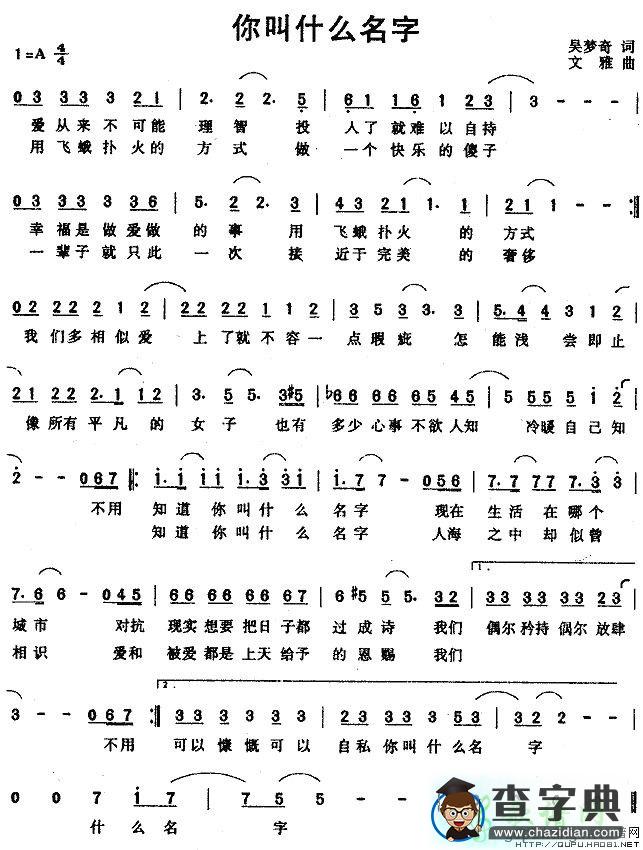 你叫什么名字
1=A 4/4
吴梦奇 词
文 雅 曲
03 33 3 21 | 2. 2 2. 5 | 61 16 1 23 | 3 - - - |
爱从来不可能 理智 投 人了就难以自持
用飞蛾扑火的 方式 做 一个快乐的傻子
03 33 3 36 | 5. 2 2. 3 | 43 21 1. 1 | 21 1 - - :||
幸福是做爱做 的事 用 飞蛾扑火 的 方式
一辈子就只此 一次 接 近于完美 的 奢侈
02 22 2 1 2 | 2 22 22 1 2 | 3 5 3 3. 3 | 5. 4 4 3 1 2 |
我们多相似爱 上了就不容一 点瑕疵 怎 能浅 尝即止
21 22 2. 1 12 | 3. 5 5. 3#5 | b6 66 66 65 45 | 5 55 5 1 2 |
像所有平凡的 女子 也有 多少心事不欲人知 冷暖自己知
2 - - 067 ||: 1. 1 1 1 1. 3 3 1 | 1. 7 7 - 056 | 7. 7 77 7. 3 3 |
不用 知道 你叫什么 名字 现在 生活在哪个
知道 你叫什么 名字 人海 之中却似曾
1.
7. 6 6 - 045 | 66 66 66 66 | 6 #5 5 5. 32 | 33 33 33 23 |
城市 对抗 现实想要把日子都 过成诗 我们 偶尔矜持偶尔放肆
相识 爱和 被爱都是上天给予 的恩赐 我们
2.
3 - - 067 :|| 33 33 33 3 | 23 33 3 53 | 3 2 2 - - |
不用 可以慷慨可以 自私你叫什么名 字
0 0 7 1 | 7 5 5 - - |
什么名 字
查字典
www.chazidian.com
HTTP://QUPU.HAO81.NET